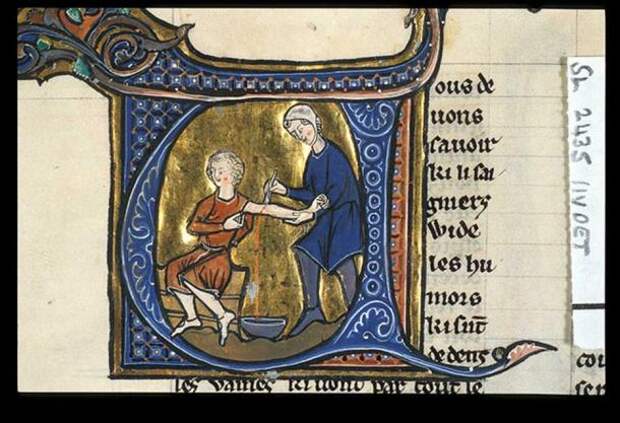 ous de
uons
sauoir
ki li sai
gniers
Wide
les hu
mors
ki sūt
dedens
les uaines ki uont par tout le
cou
ser
SL 2435 11V DET